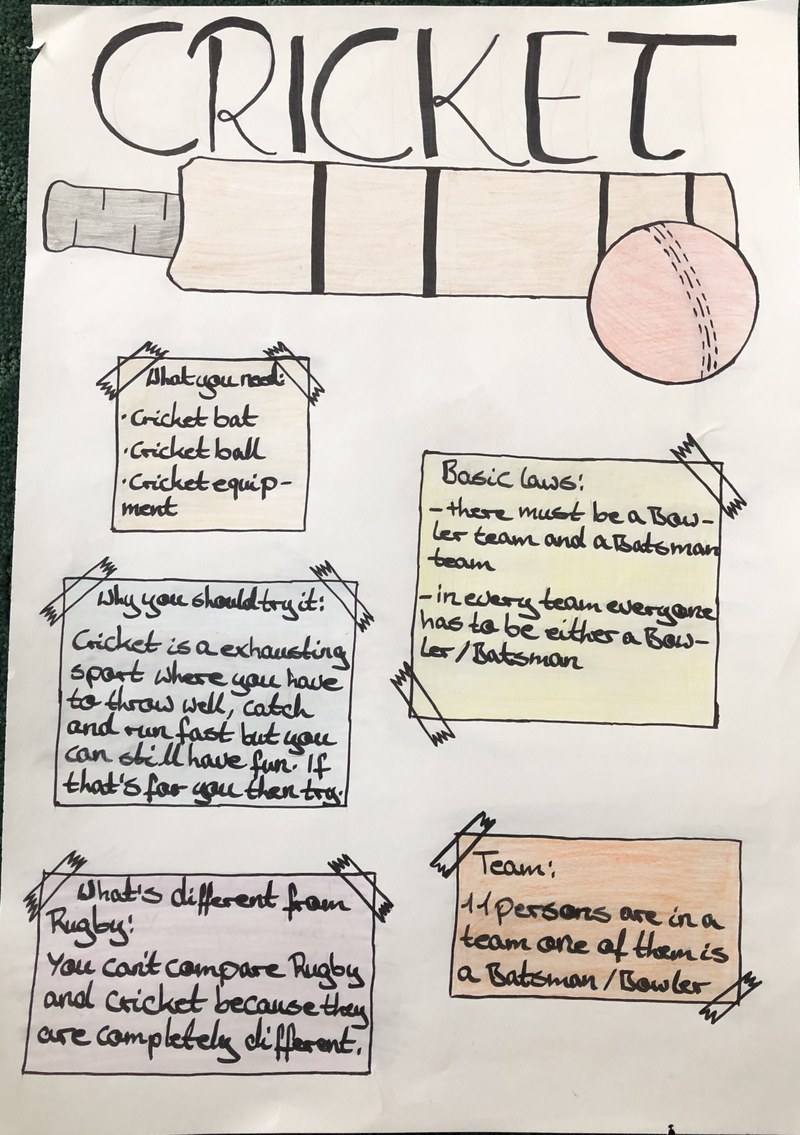 CRICKET
What you need:
·Cricket bat
·Cricket ball
·Cricket equip-
ment
Basic laws:
-there must be a Bow-
ler team and a Batsman
team
-in every team everyone
has to be either a Bow-
ler/Batsman
Why you should try it:
Cricket is a exhausting
sport where you have
to throw well, catch
and run fast but you
can still have fun. If
that's for you then try.
Team:
11 persons are in a
team one of them is
a Batsman/Bowler
What's different from
Rugby:
You can't compare Rugby
and Cricket because they
are completely different.